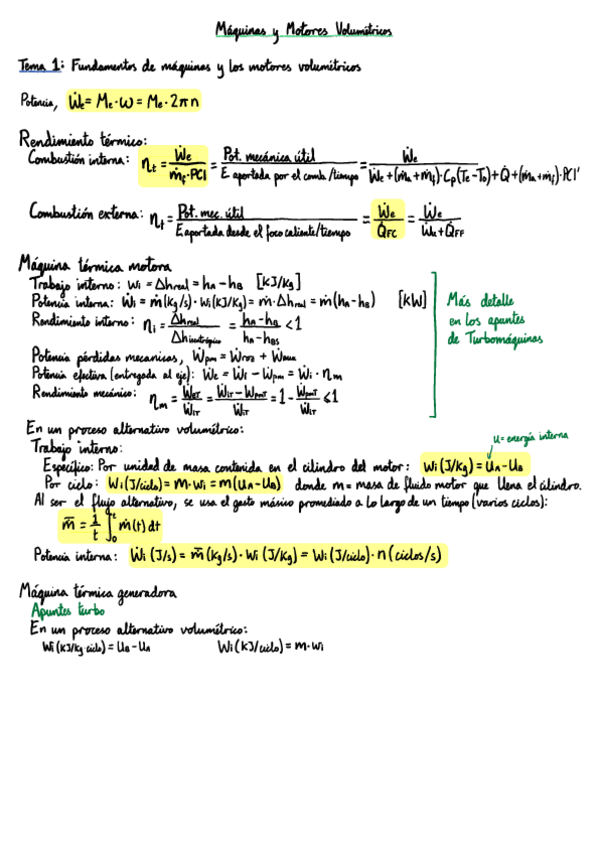 Máquinas y Motores Volumétricos
Tema 1: Fundamentos de máquinas y los motores volumétricos
Potencia, Ẇe = Me·ω = Me·2πn
Rendimiento térmico:
Combustión interna: ηt = Ẇe / ṁf·PCI = Pot. mecánica útil / E aportada por el comb./tiempo = Ẇe / Ẇe+(ṁa+ṁf)·Cp(Te-T0)+Q̇+(ṁa+ṁf)·PCI'
Combustión externa: ηt = Pot. mec. útil / E aportada desde el foco caliente/tiempo = Ẇe / Q̇FC = Ẇe / Ẇe+Q̇FF
Máquina térmica motora
Trabajo interno: wi = Δhreal = hA-hB [kJ/kg]
Potencia interna: Ẇi = ṁ(kg/s)·wi(kJ/kg) = ṁ·Δhreal = ṁ(hA-hB) [kW]
Rendimiento interno: ηi = Δhreal / Δhisentrópico = hA-hB / hA-hBS < 1
Más detalle
en los apuntes
de Turbomáquinas
Potencia pérdidas mecanicas, Ẇpm = Ẇroz + Ẇaux
Potencia efectiva (entregada al eje): Ẇe = Ẇi - Ẇpm = Ẇi·ηm
Rendimiento mecánico: ηm = ẆeT / ẆiT = ẆiT-ẆpmT / ẆiT = 1 - ẆpmT / ẆiT < 1
En un proceso alternativo volumétrico:
u = energía interna
Trabajo interno:
Específico: Por unidad de masa contenida en el cilindro del motor: wi(J/kg) = uA-uB
Por ciclo: Wi(J/ciclo) = m·wi = m(uA-uB) donde m = masa de fluido motor que llena el cilindro.
Al ser el flujo alternativo, se usa el gasto másico promediado a lo largo de un tiempo (varios ciclos):
m̄ = 1/t ∫0^t ṁ(t)dt
Potencia interna: Ẇi (J/s) = m̄(kg/s)·wi (J/kg) = Wi(J/ciclo)·n(ciclos/s)
Máquina térmica generadora
Apuntes turbo
En un proceso alternativo volumétrico:
wi(kJ/kg·ciclo) = uB-uA Wi(kJ/ciclo) = m·wi